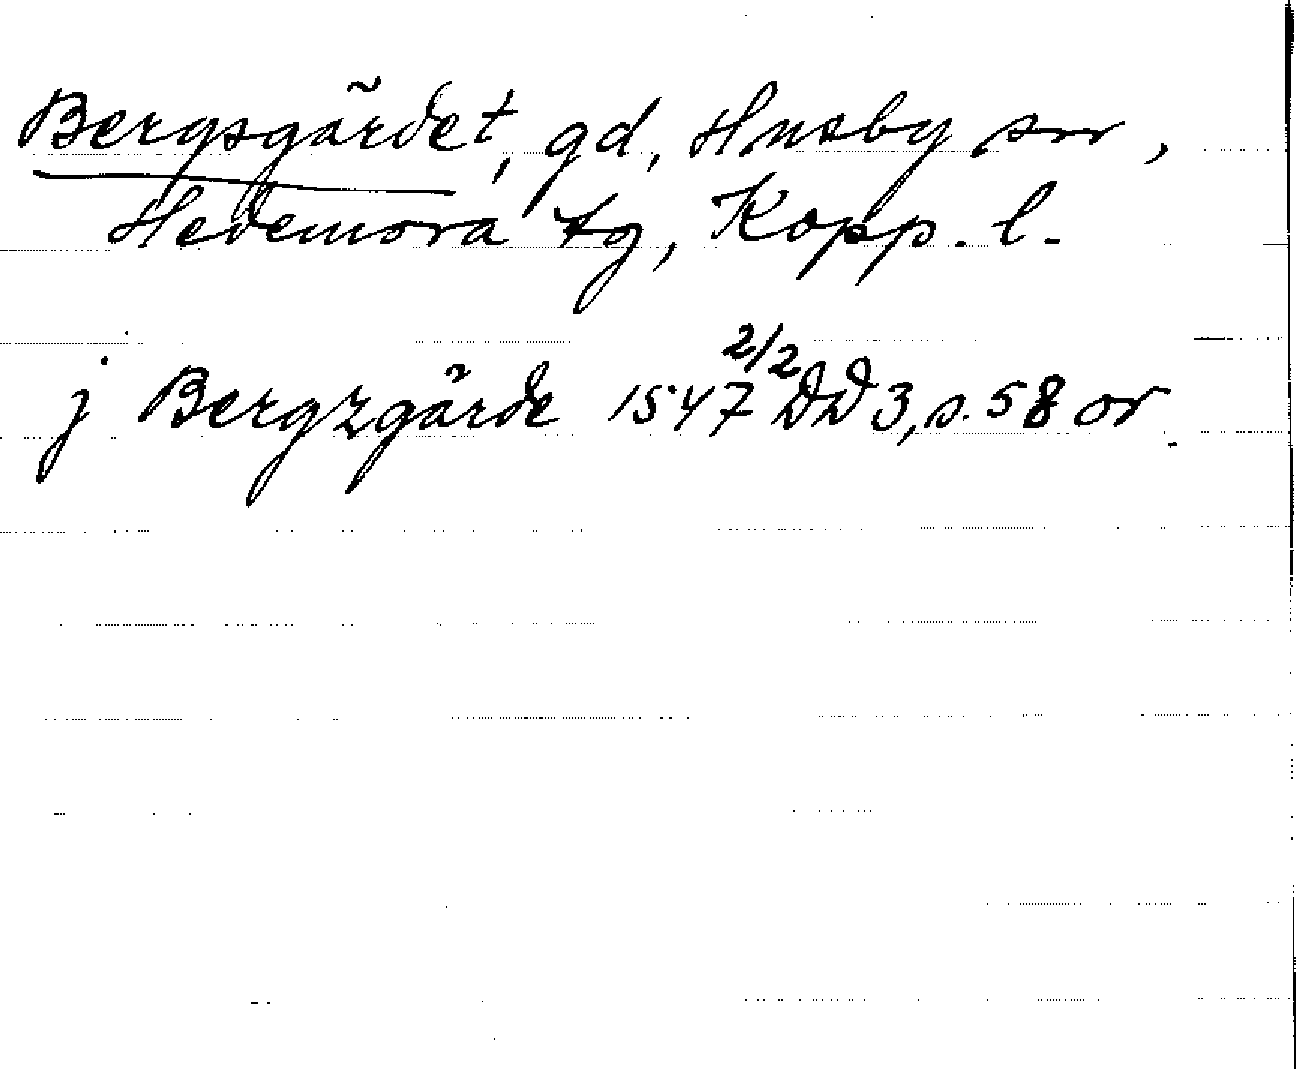 Bergsgärdet, gd, Husby sn,
Hedemora tg, Kopp. l.
j Bergzgärde 1547 2/2 DD 3, s. 58 or.